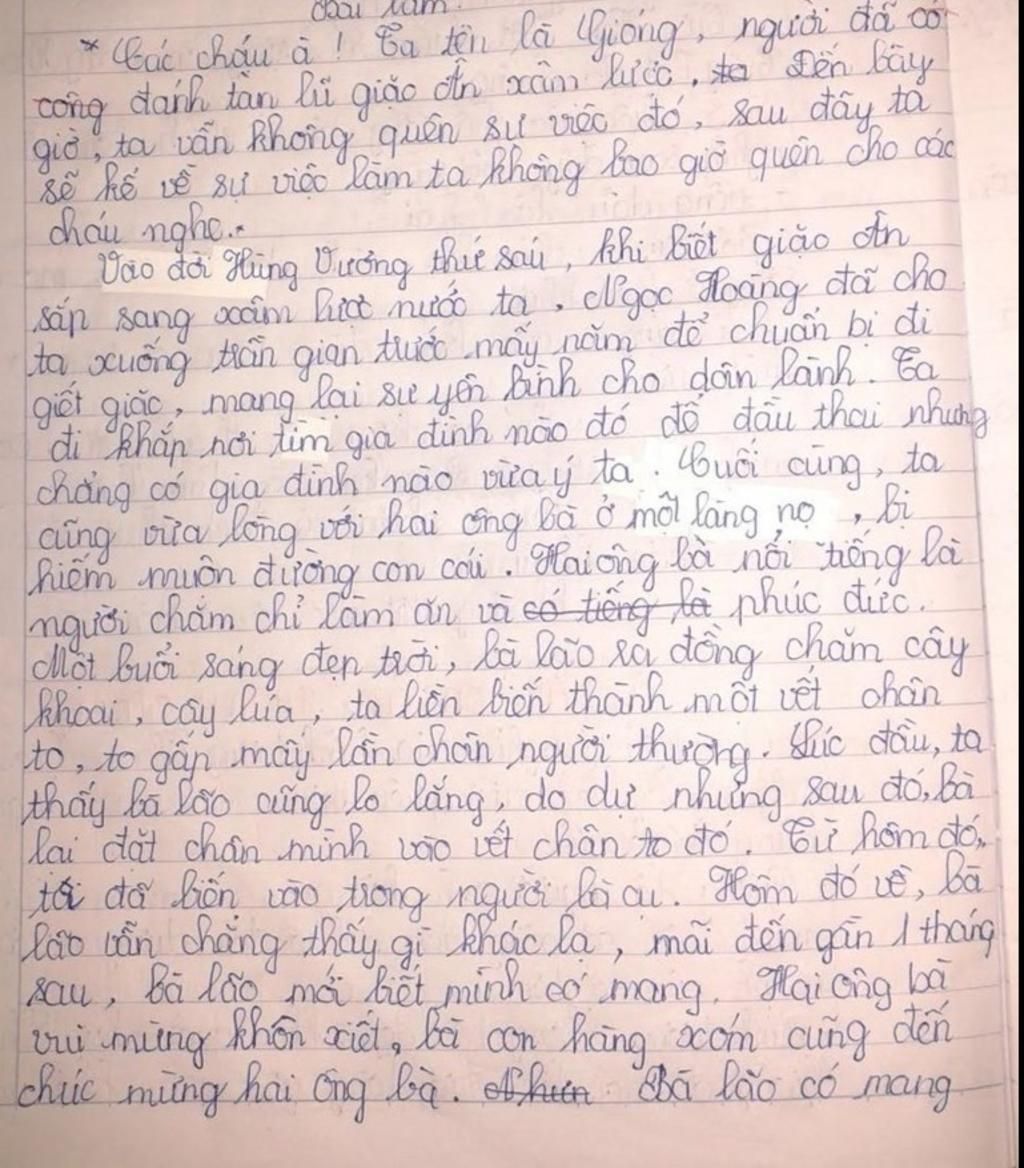 Bài làm.
* Các cháu à! Ta tên là Gióng, người đã có
công đánh tan lũ giặc Ân xâm lược, ta Đến bây
giờ, ta vẫn không quên sự việc đó, sau đây ta
sẽ kể về sự việc làm ta không bao giờ quên cho các
cháu nghe.
Vào đời Hùng Vương thứ sáu, khi biết giặc Ân
sắp sang xâm lược nước ta, Ngọc Hoàng đã cho
ta xuống trần gian trước mấy năm để chuẩn bị đi
giết giặc, mang lại sự yên bình cho dân lành. Ta
đi khắp nơi tìm gia đình nào đó để đầu thai nhưng
chẳng có gia đình nào vừa ý ta. Cuối cùng, ta
cũng vừa lòng với hai ông bà ở một làng nọ, bị
hiếm muộn đường con cái. Hai ông bà nổi tiếng là
người chăm chỉ làm ăn và có tiếng là phúc đức.
Một buổi sáng đẹp trời, bà lão ra đồng chăm cây
khoai, cây lúa, ta liền biến thành một vết chân
to, to gấp mấy lần chân người thường. Lúc đầu, ta
thấy bà lão cũng lo lắng, do dự nhưng sau đó, bà
lại đặt chân mình vào vết chân to đó. Từ hôm đó,
tôi đã biến vào trong người bà cụ. Hôm đó về, bà
lão vẫn chẳng thấy gì khác lạ, mãi đến gần 1 tháng
sau, bà lão mới biết mình có mang. Hai ông bà
vui mừng khôn xiết, bà con hàng xóm cũng đến
chúc mừng hai ông bà. Nhưn Bà lão có mang